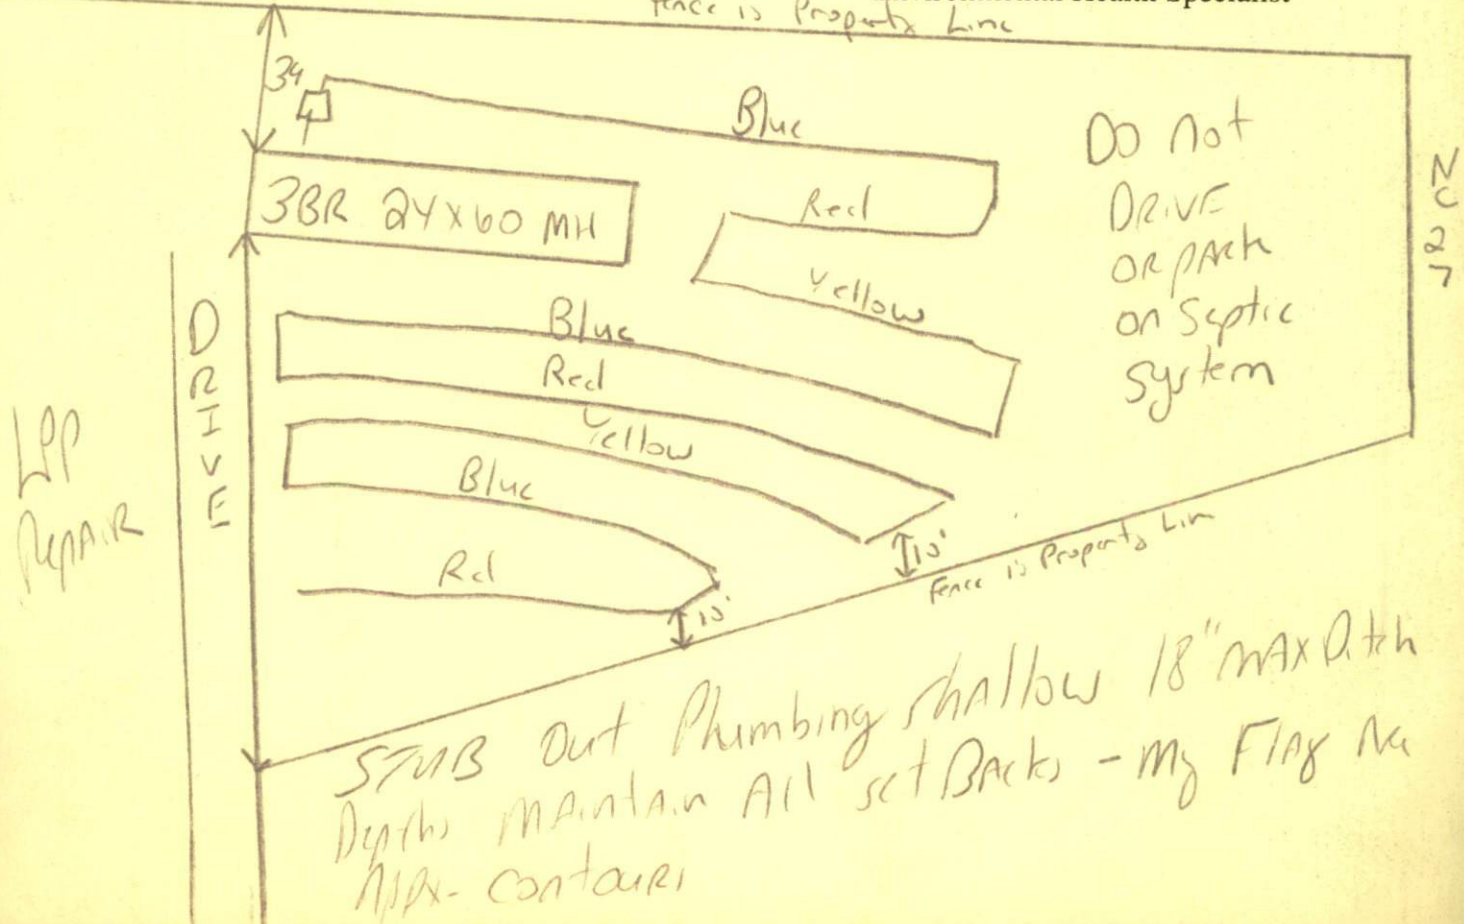 Environmental Health Specialist
Fence is Property Line
34
Blue
Do not
DRIVE
OR PARK
on Septic
System
NC 27
3BR 24x60 MH
Red
Yellow
DRIVE
Blue
Red
Yellow
Blue
Red
LPP
REPAIR
10'
10'
Fence is Property Line
STUB Out Plumbing shallow 18" MAX Ditch
Depths MAintain All setBAcks - My FlAgs
Appx- contours